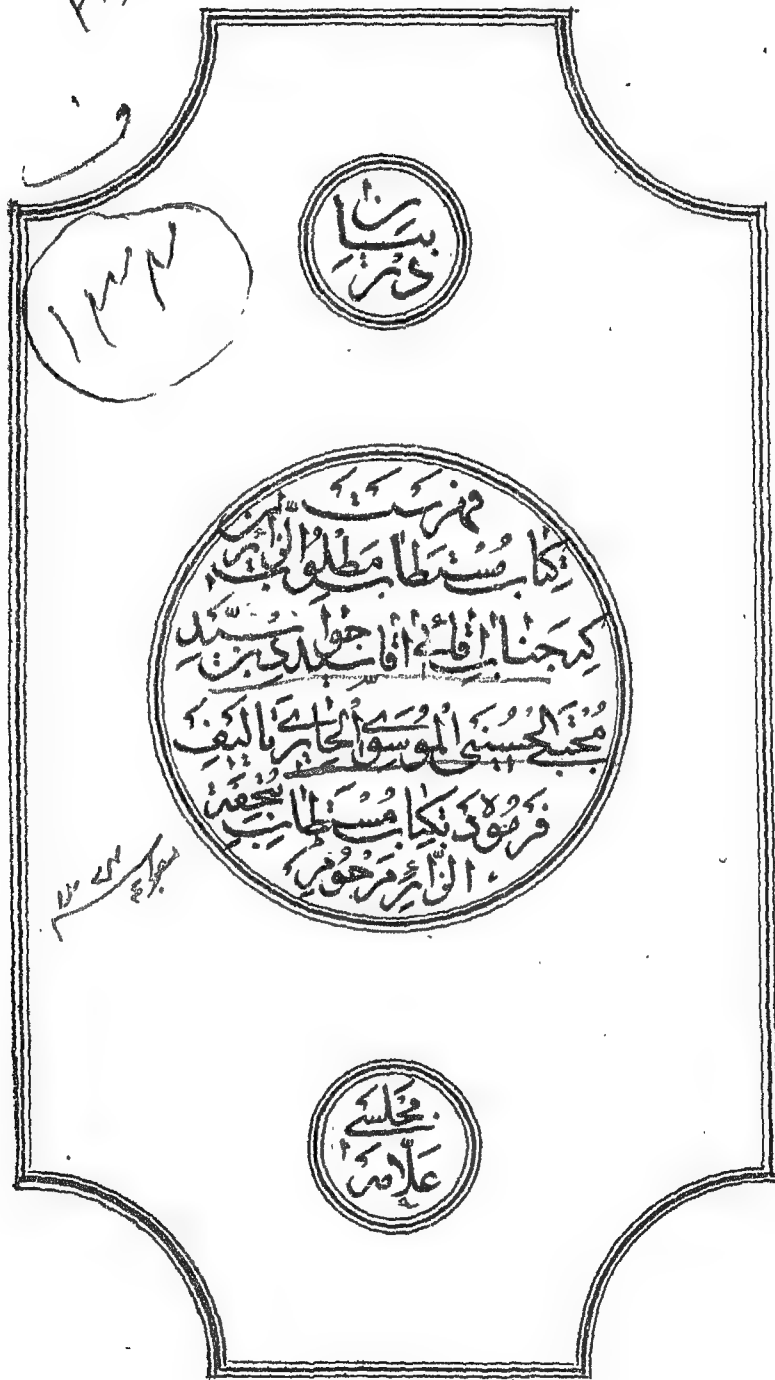 در بیان
فهرست این
کتاب مستطاب مطلوب الزائر
که جناب اقای آقا سید جواد بن سید
مجتبی الحسینی الموسوی الحایری تالیف
فرموده بکتاب مستطاب تحفة
الزائر مرحوم
علامه مجلسی
۱۳۳